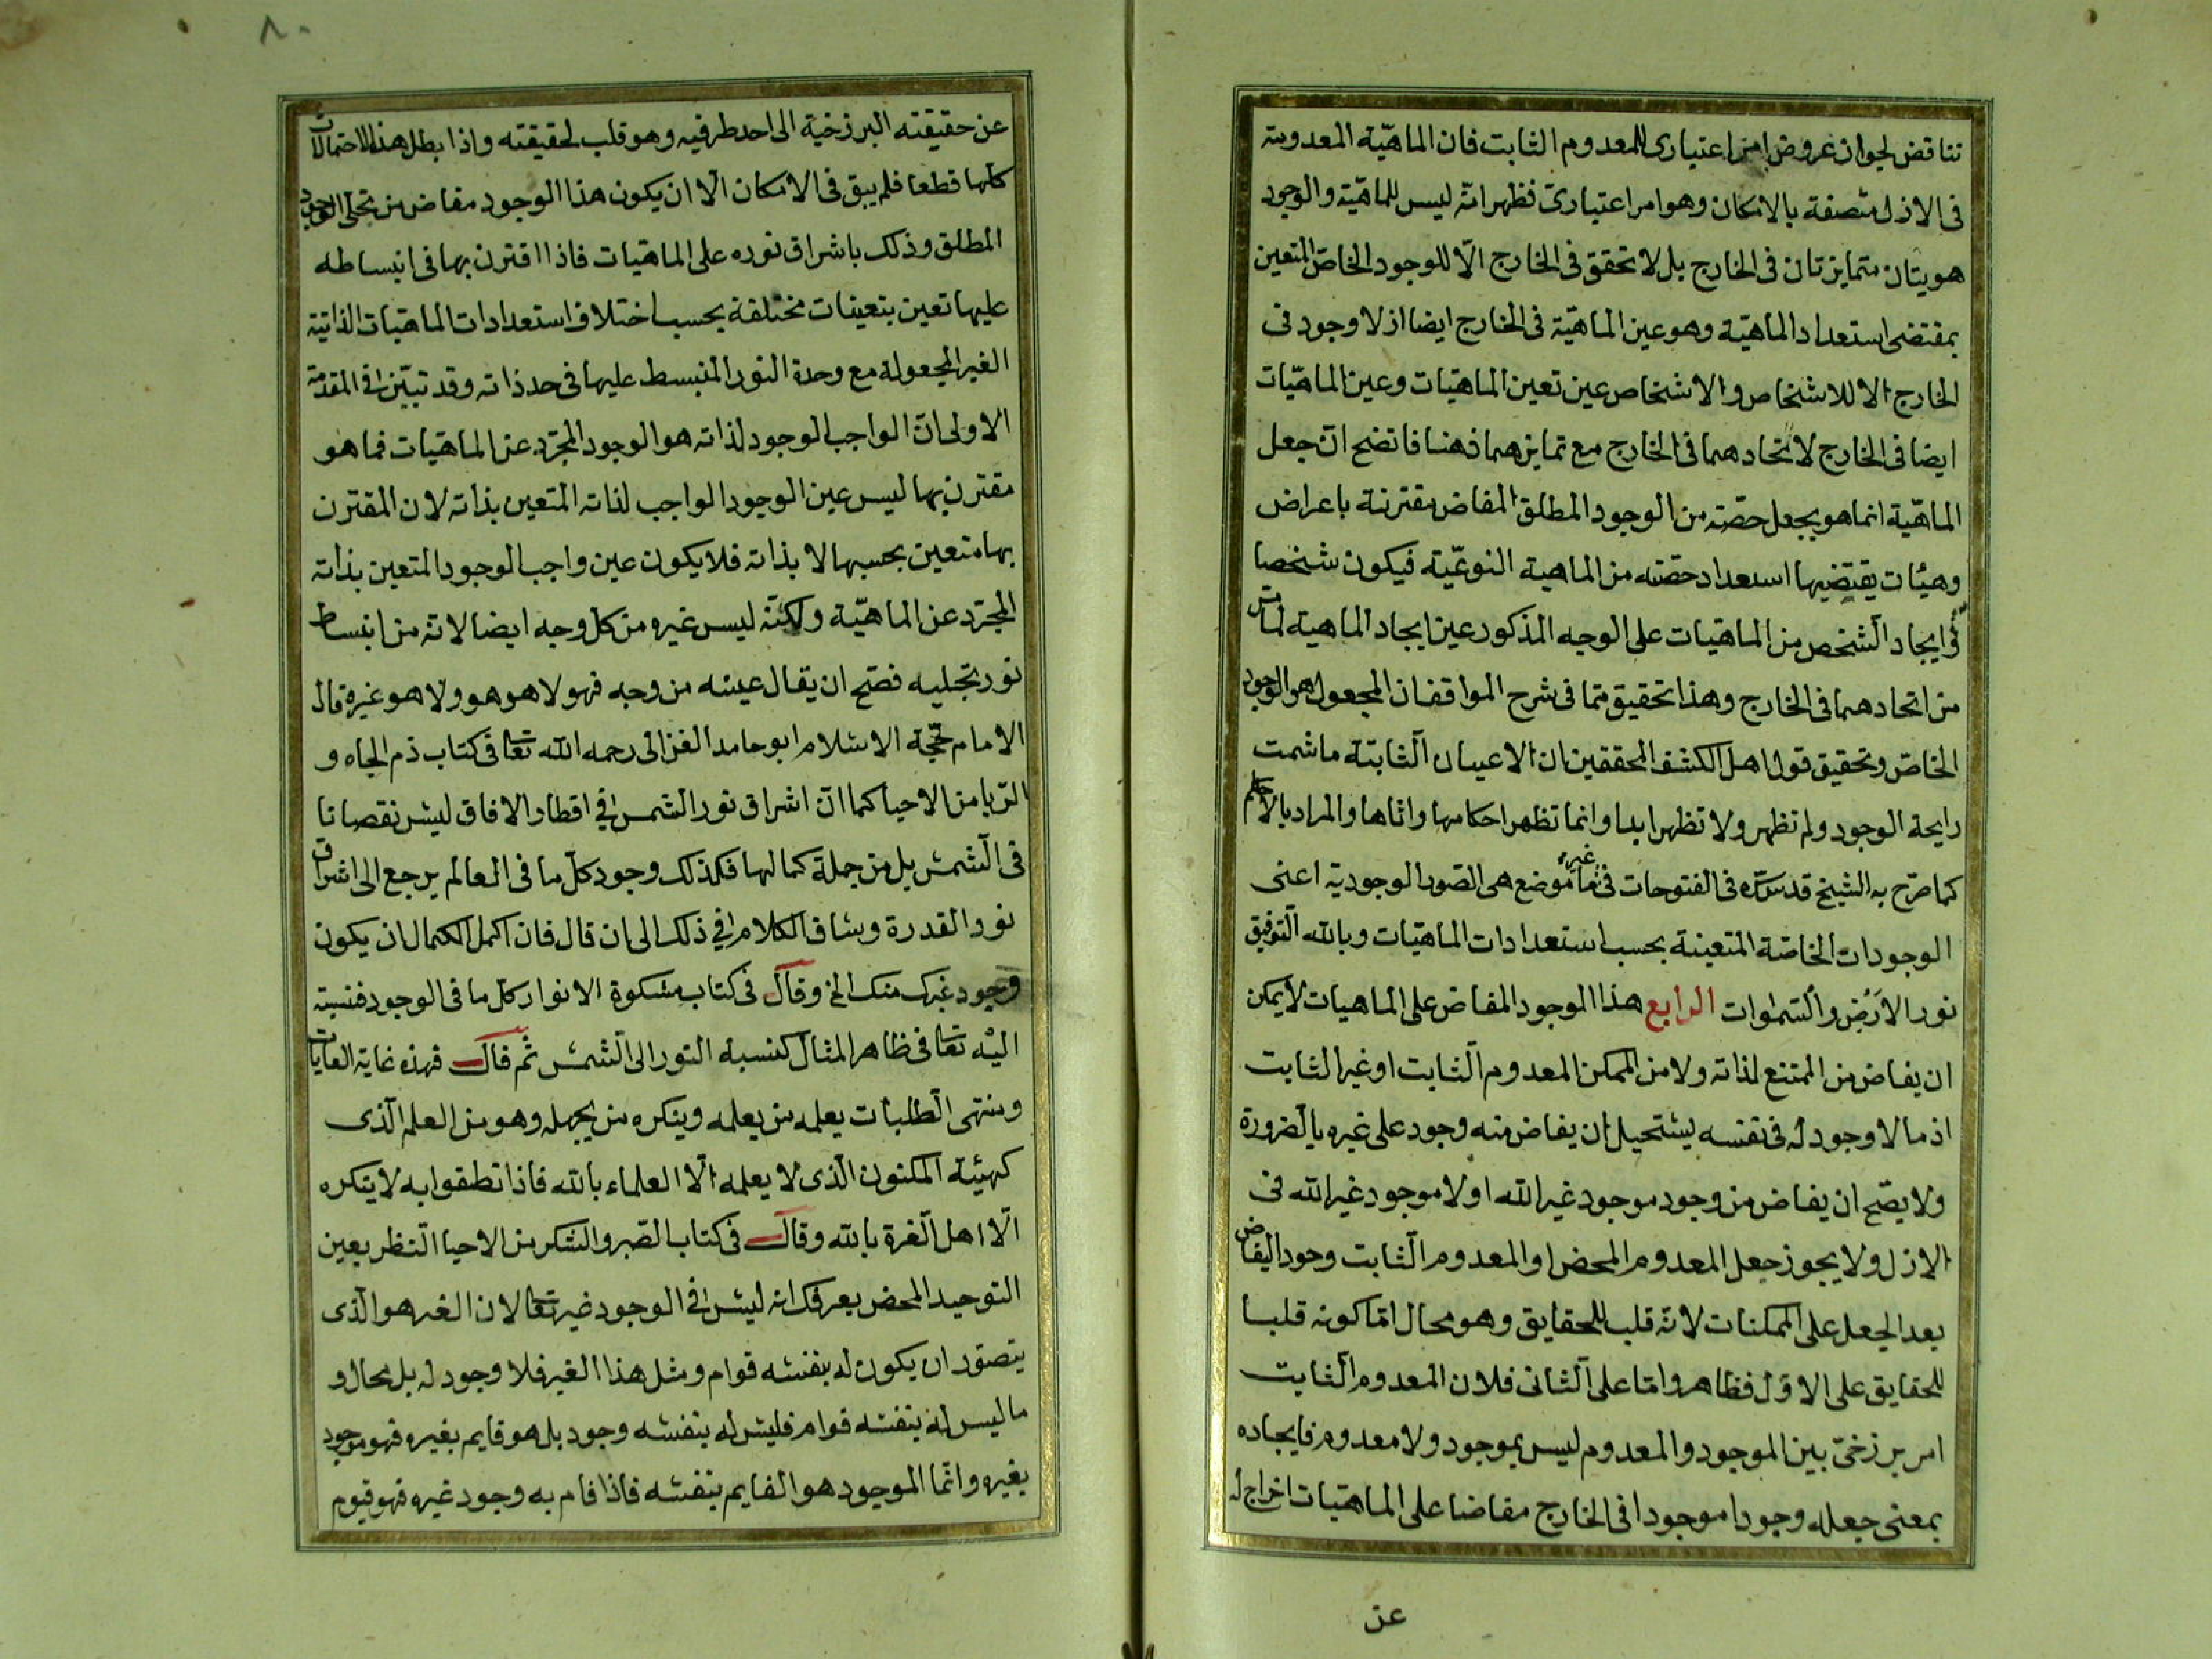 تناقض لجواز عروض امر اعتبارى للمعدوم الثابت فان الماهيّة المعدومة
فى الازل متصفة بالامكان وهو امر اعتبارىّ فظهر انّه ليس للماهيّة والوجود
هويتان متمايزتان فى الخارج بل لا تحقق فى الخارج الّا للوجود الخاصّ المتعين
بمقتضى استعداد الماهيّة وهو عين الماهيّة فى الخارج ايضا اذ لا وجود فى
الخارج الا للاشخاص والاشخاص عين تعين الماهيّات وعين الماهيّات
ايضا فى الخارج لاتحادهما فى الخارج مع تمايزهما ذهنا فاتضح انّ جعل
الماهيّة انما هو بجعل حصّته من الوجود المطلق المفاض مقترنة باعراض
وهيئات يقتضيها استعداد حصّته من الماهية النوعيّة فيكون شخصا
وايجاد الشخص من الماهيّات على الوجه المذكور عين ايجاد الماهية لما مرّ
من اتحادهما فى الخارج وهذا تحقيق متا فى شرح المواقف ان المجعول هو الوجود
الخاصّ وتحقيق قول اهل الكشف المحققين ان الاعيان الثابتة ما شمت
رايحة الوجود ولم تظهر ولا تظهر ابدا وانما تظهر احكامها واثاها والمراد بالاحكام
كما صرّح به الشيخ قدس سرّه فى الفتوحات فى غير ما موضع هى الصّور الوجودية اعنى
الوجودات الخاصّة المتعينة بحسب استعدادات الماهيّات وبالله التّوفيق
نور الارض والسّموات الرابع هذا الوجود المفاض على الماهيات لا يمكن
ان يفاض من الممتنع لذاته ولا من الممكن المعدوم الثابت او غير الثابت
اذ ما لا وجود له فى نفسه يستحيل ان يفاض منه وجود على غيره بالضرورة
ولا يصّح ان يفاض من وجود موجود غير الله او لا موجود غير الله فى
الازل ولا يجوز جعل المعدوم المحض او المعدوم الثّابت وجودا ليفاض
بعد الجعل على الممكنات لانّه قلب للحقايق وهو محال امّا كونه قلبا
للحقايق على الاوّل فظاهر وامّا على الثّانى فلان المعدوم الثّابت
امر برزخىّ بين الموجود والمعدوم ليس بموجود ولا معدوم فايجاده
بمعنى جعله وجودا موجودا فى الخارج مفاضا على الماهيّات اخراج له
عن
٨٠
عن حقيقته البرزخية الى احد طرفيه وهو قلب لحقيقته واذا بطل هذه الاحتمالات
كلّها قطعا فلم يبق فى الامكان الّا ان يكون هذا الوجود مفاض من تجلى الوجود
المطلق وذلك باشراق نوره على الماهيّات فاذا اقترن بها فى انبساطه
عليها تعين بتعينات مختلفة بحسب اختلاف استعدادات الماهيّات الذاتيّة
الغير المجعولة مع وحدة النور المنبسط عليها فى حد ذاته وقد تبيّن فى المقدّمة
الاولى انّ الواجب الوجود لذاته هو الوجود المجرّد عن الماهيّات فما هو
مقترن بها ليس عين الوجود الواجب لذاته المتعين بذاته لان المقترن
بها متعين بحسبها لا بذاته فلا يكون عين واجب الوجود المتعين بذاته
المجرّد عن الماهيّة ولكنّه ليس غيره من كلّ وجه ايضا لانه من انبساط
نور تجليه فصّح ان يقال عينه من وجه فهو لا هو هو ولا هو غيره قال
الامام حجّة الاسلام ابو حامد الغزالى رحمه الله تعا فى كتاب ذم الجاه و
الرّيا من الاحيا كما انّ اشراق نور الشمس فى اقطار الافاق ليس نقصانا
فى الشّمس بل من جملة كمالها فكذلك وجود كلّ ما فى العالم يرجع الى اشراق
نور القدرة وساق الكلام فى ذلك الى ان قال فان اكمل الكمال ان يكون
وجود غيرك منك الخ وقال فى كتاب مشكوة الانوار كلّ ما فى الوجود فنسبته
اليه تعا فى ظاهر المثال كنسبة النّور الى الشّمس ثم قال فهذه غاية الغايات
ومنتهى الطلبات يعلمه من يعلمه وينكره من يجهله وهو من العلم الّذى
كهيئة المكنون الّذى لا يعلمه الّا العلماء بالله فاذا نطقوا به لا ينكره
الّا اهل الغرة بالله وقال فى كتاب الصّبر والشكر من الاحيا النّظر بعين
التوحيد المحض يعرفك انه ليس فى الوجود غيره تعا لان الغير هو الّذى
يتصوّر ان يكون له بنفسه قوام ومثل هذا الغير فلا وجود له بل محال و
ما ليس له بنفسه قوام فليس له بنفسه وجود بل هو قايم بغيره فهو موجود
بغيره وانّما الموجود هو القايم بنفسه فاذا قام به وجود غيره فهو قيوم